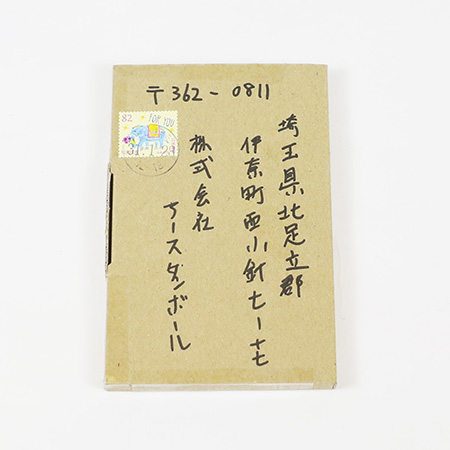 〒362-0811
埼玉県北足立郡
伊奈町西小針七-十七
株式会社
アースダンボール
82
FOR YOU
31.1.24